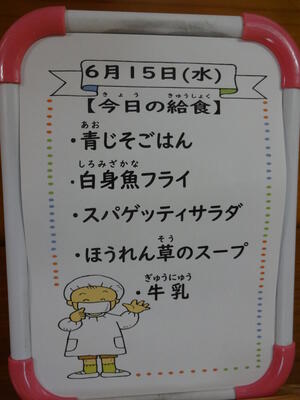 6月15日(水)
きょう きゅうしょく
【今日の給食】
あお
・青じそごはん
しろみざかな
・白身魚フライ
・スパゲッティサラダ
そう
・ほうれん草のスープ
ぎゅうにゅう
・牛乳